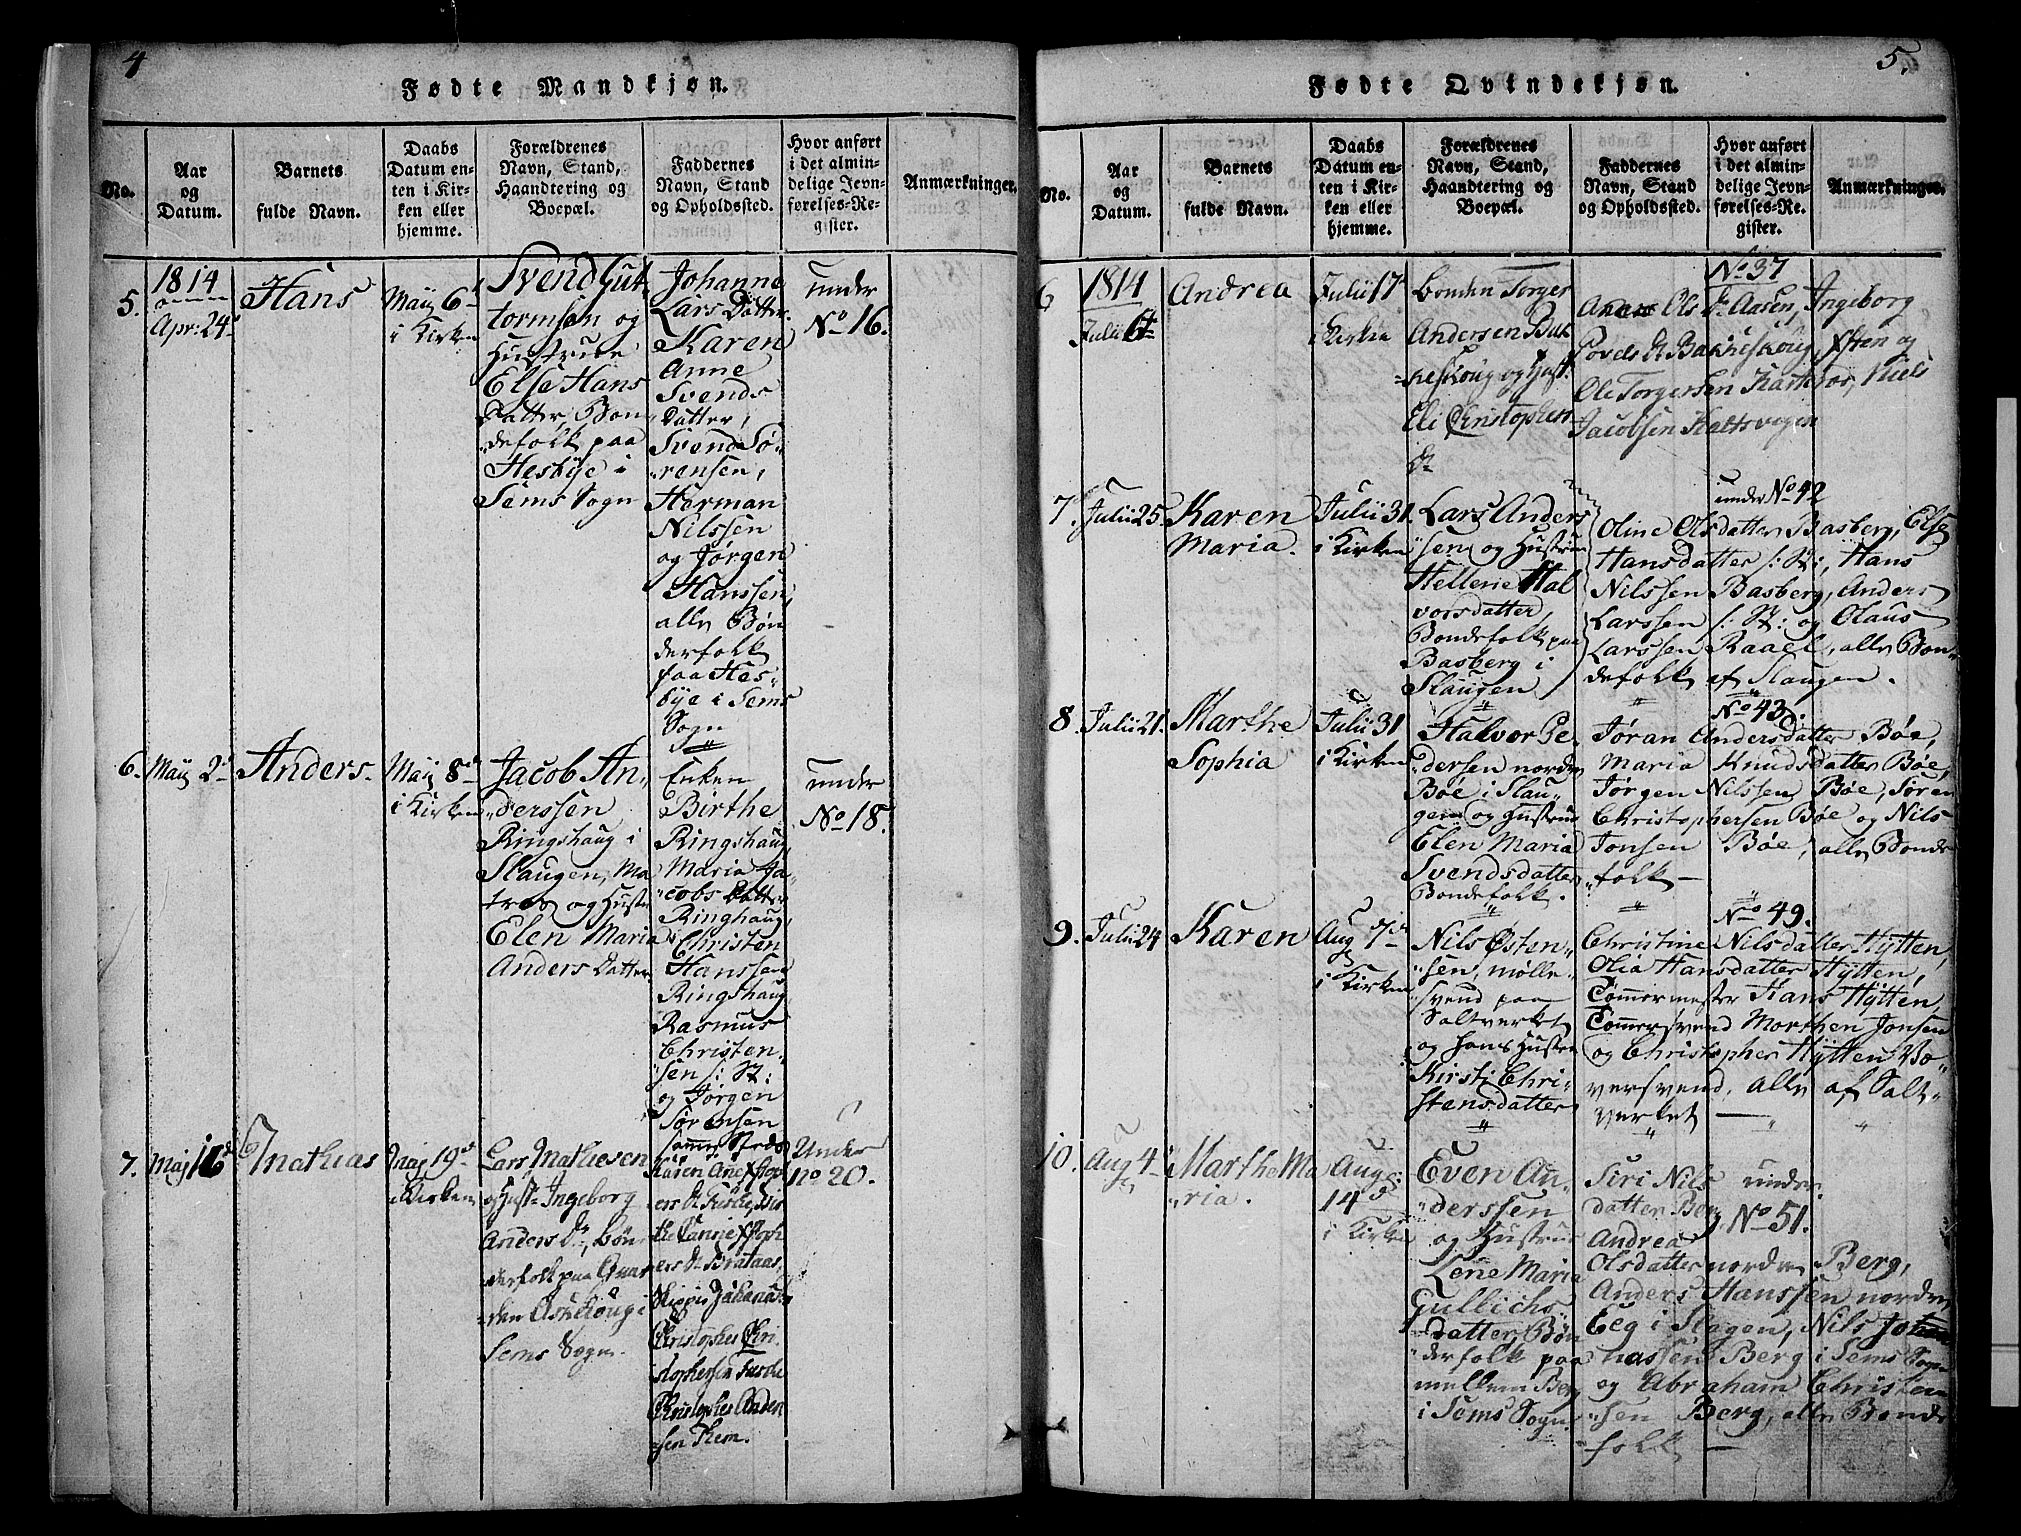 4
Fødte Mandkjøn.
No.
Aar
og
Datum.
Barnets
fulde Navn.
Daabs
Datum en-
ten i Kir-
ken eller
hjemme.
Forældrenes
Navn, Stand,
Haandtering og
Boepæl.
Faddernes
Navn, Stand
og Opholdssted.
Hvor anført
i det almin-
delige Jevn-
førelses-Re-
gister.
Anmærkninger.
5.
1814
Apr: 24
Hans
Maij 6
i Kirken
Svend Gut
tormsen og
Hustrue
Else Hans
Datter, Bon
defolk paa
Hesbye i
Sems Sogn
Johanne
Lars Datter
Karen
Anne
Svends
Datter,
Svend Sö-
rensen,
Herman
Nilssen
og Jørgen
Hanssen,
alle Bøn
derfolk
paa Hes-
bye i Sems
Sogn
under
No 16.
6.
Maij 2
Anders.
Maij 8
i Kirken
Jacob An,
derssen
Ringshaug i
Slaugen, Ma
tros og Hustr
Elen Maria
Anders Datter
Enken
Birthe
Ringshaug
Maria Ja-
cobs Datter
Ringhaug,
Christen
Hanssen
Ringshaug
Rasmus
Christen,
sen /: St:
og Jørgen
Sørensen
samme Steds
under
No 18.
7.
Maj 16
Mathias
Maj 19
i Kirken
Lars Mathiesen
og Hust- Ingeborg
Anders Dr, bøn
derfolk paa
den Askskoug i
Sems Sogn.
Karen Ane Xstop
ers Dr
Xstoph
ers Dr Brataas,
Christopher Chri
stophersen
Christopher Ander
sen Them.
Under
no 20.
5.
Fødte Qvindekjøn.
No.
Aar
og
Datum.
Barnets
fulde Navn.
Daabs
Datum en-
ten i Kir-
ken eller
hjemme.
Forældrenes
Navn, Stand,
Haandtering og
Boepæl.
Faddernes
Navn, Stand
og Opholdssted.
Hvor anført
i det almin-
delige Jevn-
førelses-Re-
gister.
Anmærkninger.
6
1814
Julii 6
Andrea
Julii 17
i Kirken
bonden Torger
Andersen Bak
keskoug og Hust.
Eli Christophers
Dr
No 37
Ols Dr Aasen, Ingeborg
Povels Dr Bakkeskoug, Østen og
Ole Torgersen Niels
Jacobsen
7.
Julii 25.
Karen
Maria.
Julii 31.
i Kirken
Lars Anders
sen og Hustrue
Hellene Hal
vorsdatter,
Bondefolk paa
Basberg i
Slaugen
under No 42
Oline Olsdatter Basberg, Else
Hansdatter /: St:, Hans
Nilssen Basberg, Anders
Larssen /: St: og Olaus
Larssen Raael, alle Bon-
defolk af Slaugen.
8.
Julii 21.
Marthe
Sophia
Julii 31
i Kirken
Halvor Pe-
dersen nordre
Bøe i Slau-
gen og Hustrue
Elen Maria
Svendsdatter
Bondefolk.
No 43.
Jøran Andersdatter Bøe,
Maria Knudsdatter Bøe,
Jørgen Nilssen Bøe, Søren
Christophersen Bøe og Nils
Jonsen Bøe, alle Bonde
folk —
9.
Julii 24
Karen
Aug 7
i Kirken
Nils Østen-
sen, mølle-
svend paa
Saltverket
og hans Hustru
Kirsti Chri-
stensdatter
No 49.
Christine Nilsdatter Hÿtten,
Olia Hansdatter Hÿtten,
Tømmermester Hans Hÿtten
Tømmersvend Morthen Jonsen
og Christopher Hÿtten
versvend, alle af Salt-
verket —
10.
Aug 4
Marthe Ma
ria.
Aug:
14
i Kirken
Even An-
derssen
og Hustrue
Lene Maria
Gullichs
datter, Bøn
derfolk paa
mellem Berg
i Sems Sogn
Siri Nils
datter Berg,
Andrea
Olsdatter nordre Berg,
Anders Hanssen nordre
Eeg i Slagen, Nils Johan
nassen Berg i Sems Sogn
og Abraham Christen
sen Berg, alle Bonde
folk —
under
No 51.